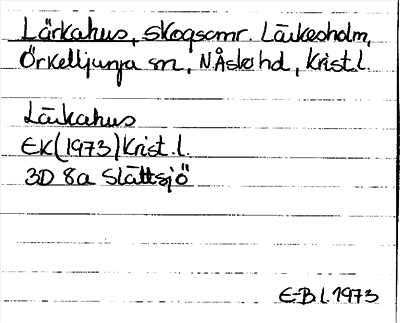 Lärkahus, skogsomr. Lärkesholm,
Örkelljunga sn, N Åsbo hd, Krist. l.
Lärkahus
EK (1973) Krist. l.
3D 8a Slättsjö
E-B L 1973